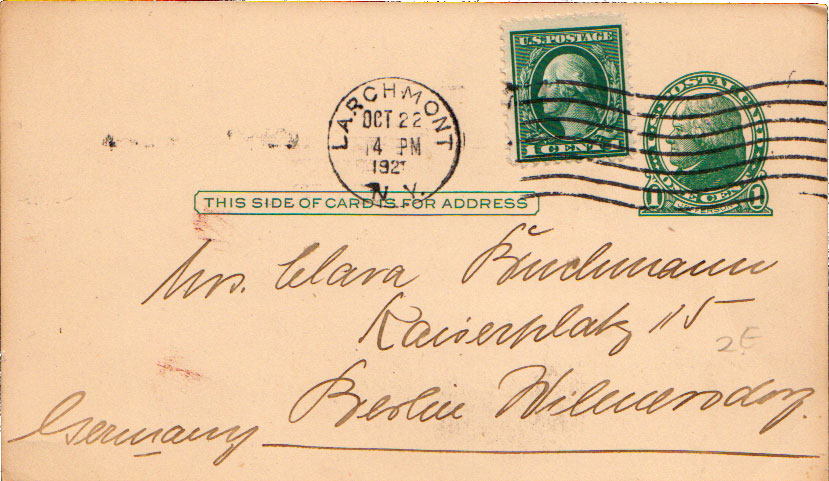 U.S. POSTAGE
1 CENT 1
POSTAL CARD
1 ONE CENT 1
JEFFERSON
LARCHMONT
OCT 22
4 PM
N. Y.
THIS SIDE OF CARD IS FOR ADDRESS
Mrs. Clara
Kaiserplatz 115
2E
Berlin Wilmersdorf.
Germany